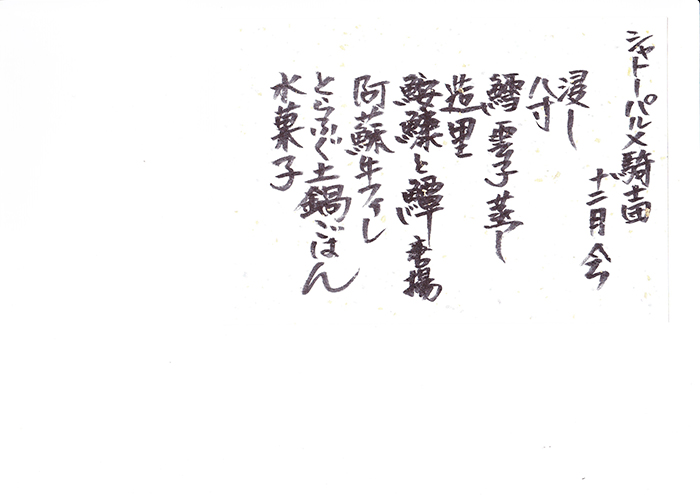 シャトーパルメ騎士団
十二月会
浸し
八寸
鱈雲子蒸し
造里
鮟鱇と鱏唐揚
阿蘇牛フィレ
とらふぐ土鍋ごはん
水菓子